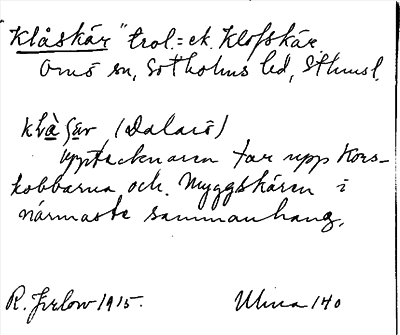 "Klåskär" trol. = ek. Klofskär
Ornö sn, Sotholms hd, Sthmsl.
klå̀sǡr (Dalarö)
Upptecknaren tar upp Kors-
kobbarna och Myggskären i
närmaste sammanhang.
R. Jirlow 1915. Ulma 140